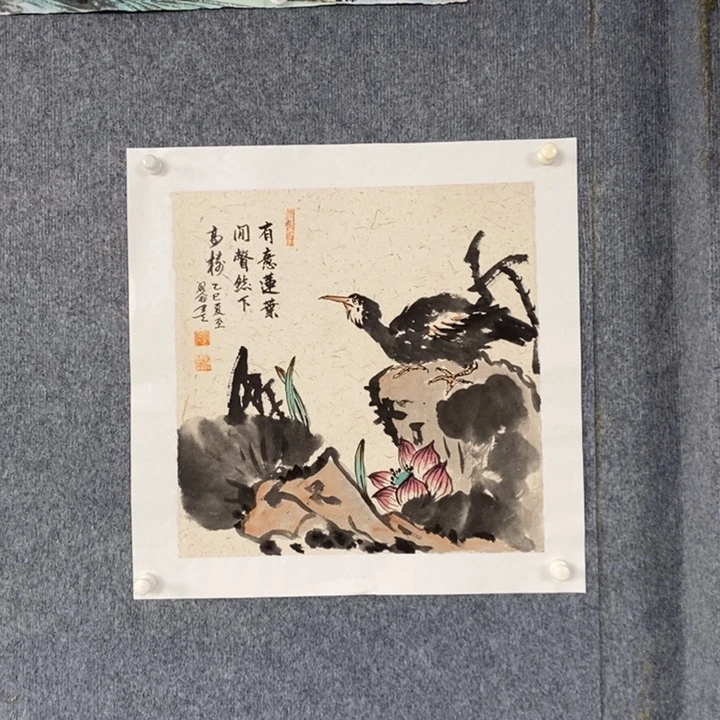 有意蓮葉
間瞥然下
高樹
乙巳夏至